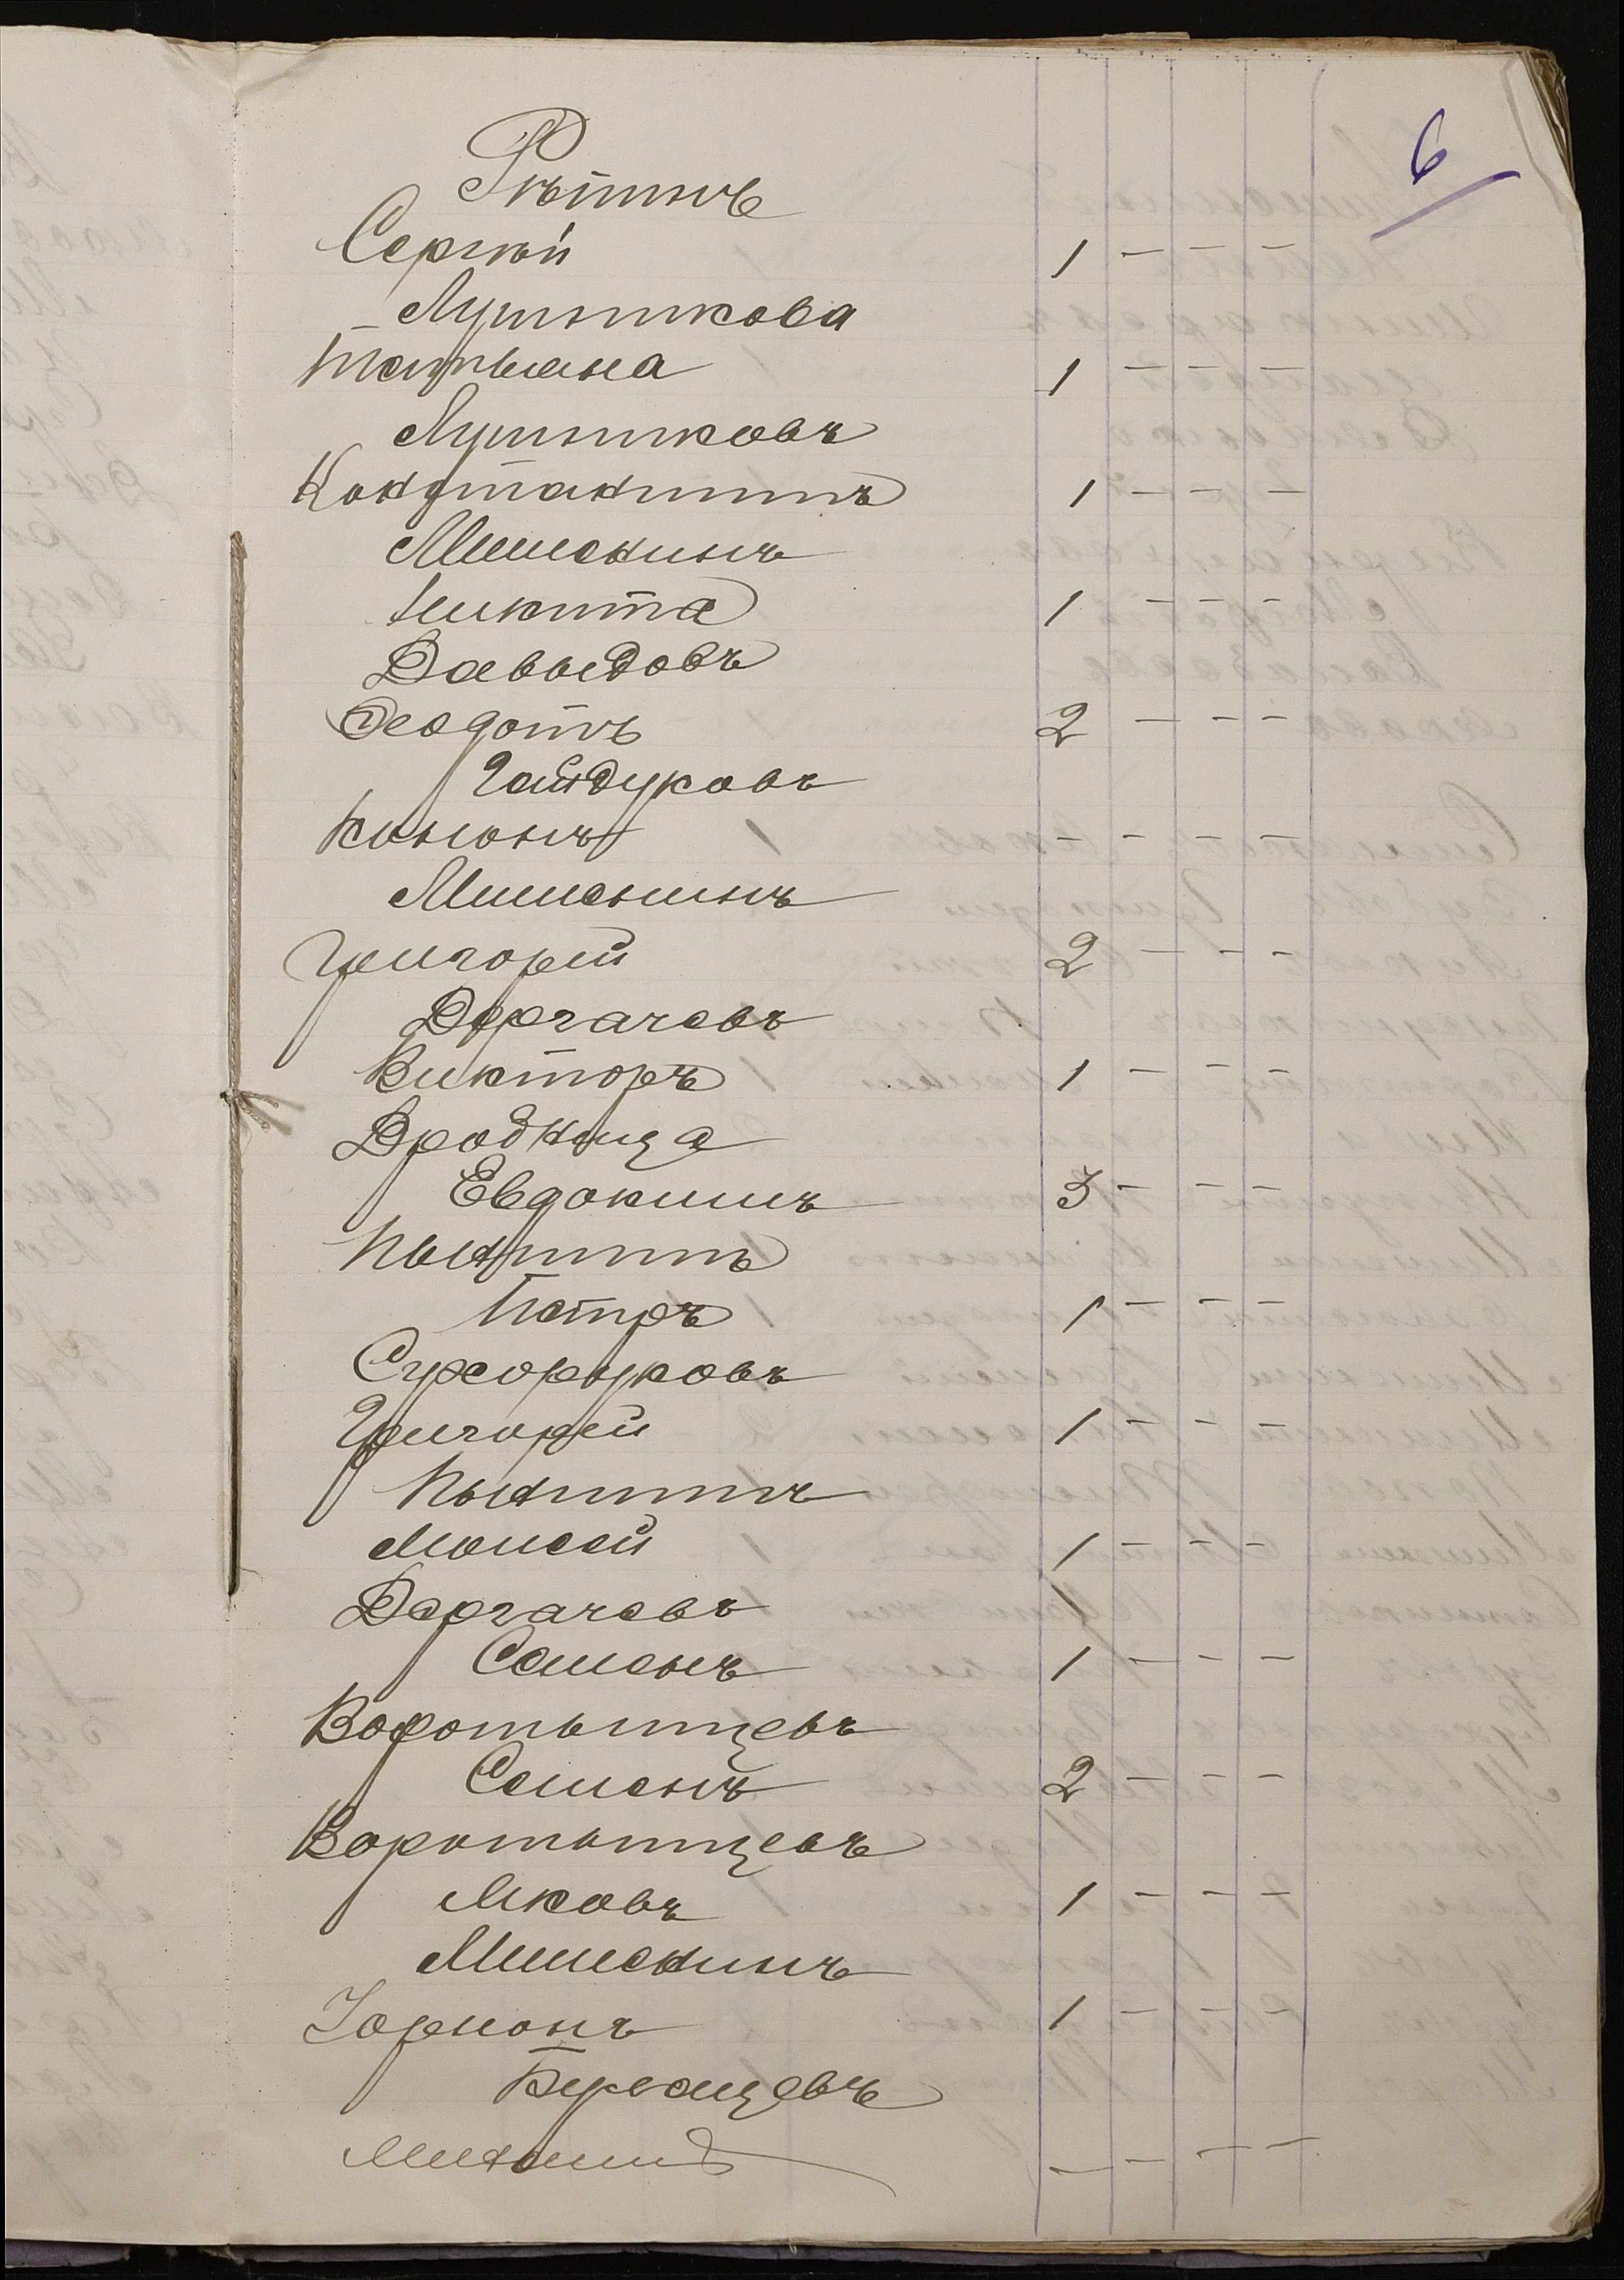 6
Рѣпинъ
Сергѣй 1 — — —
Лушникова
Татьяна 1 — — —
Лушниковъ
Константинъ 1 — — —
Мишенинъ
Никита 1 — — —
Давыдовъ
Феодотъ 2 — — —
Гайдуковъ
— — — —
Мишенинъ
Григорій 2 — — —
Дергачевъ
Викторъ 1 — — —
Бродница
Евдокимъ 3 — — —
Никитинъ
Петръ 1 — — —
Сухоруковъ
Григорій 1 — — —
Никитинъ
Моисей 1 — — —
Дергачевъ
Семенъ 1 — — —
Воротынцевъ
Семенъ 2 — — —
Воротынцевъ
Яковъ 1 — — —
Мишенинъ
1 — — —
Михаилъ — — — —